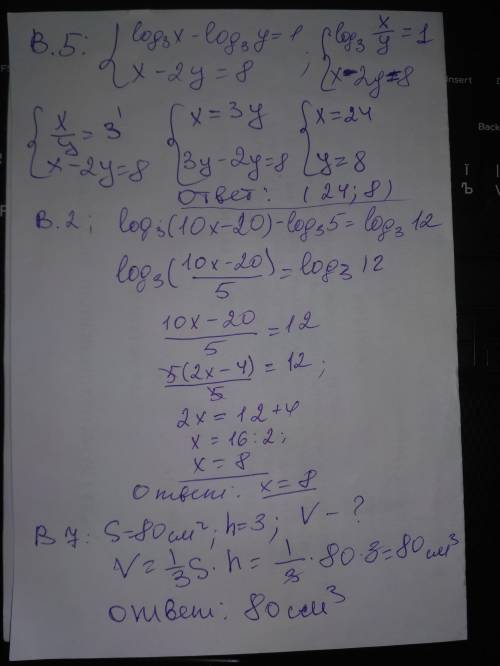 В.5: { log₃x - log₃y = 1 ; { log₃ x/y = 1
x - 2y = 8 x - 2y = 8
{ x/y = 3¹ { x = 3y { x = 24
x - 2y = 8 3y - 2y = 8 y = 8
Ответ: (24; 8)
В.2; log₃(10x-20) - log₃5 = log₃12
log₃(10x-20/5) = log₃12
10x-20/5 = 12
5(2x-4)/5 = 12;
2x = 12+4
x = 16:2;
x = 8
Ответ: x = 8
В 7: S=80см²; h=3; V - ?
V = 1/3 S · h = 1/3 · 80 · 3 = 80 см³
Ответ: 80см³
insert
Back